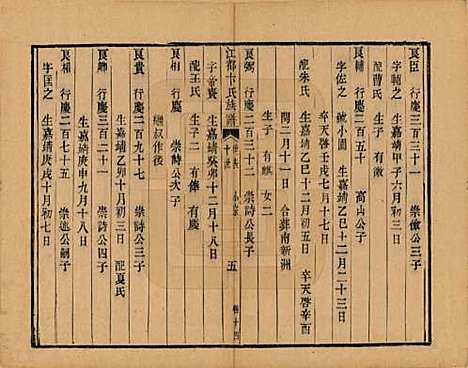 良臣 行慶二百三十一 崇儉公三子
字輔之 生嘉靖甲子六月初三日
配曹氏 生子 有徵
良輔 行慶二百五十 高山公子
字佐之 號小園 生嘉靖乙巳十二月二十三日
卒天啓壬戌七月十七日
配朱氏 生嘉靖乙巳十二月初五日 卒天啓辛酉
閏二月十一日 合葬南新洲
生子 有麒 女二
良弼 行慶二百三十二 崇詩公長子
江都卞氏族譜 世表 十世 小宗 五 卷十四
字實 生嘉靖癸卯十二月十八日
配王氏 生子二 有俸 有慶
良相 行慶 崇詩公次子
繼叔作後
良貴 行慶二百九十七 崇詩公三子
生嘉靖乙卯十月初三日 配夏氏
良卿 行慶三百二十一 崇詩公四子
生嘉靖庚申九月十八日
良相 行慶二百七十五 崇述公嗣子
字匡之 生嘉靖庚戌十月初七日